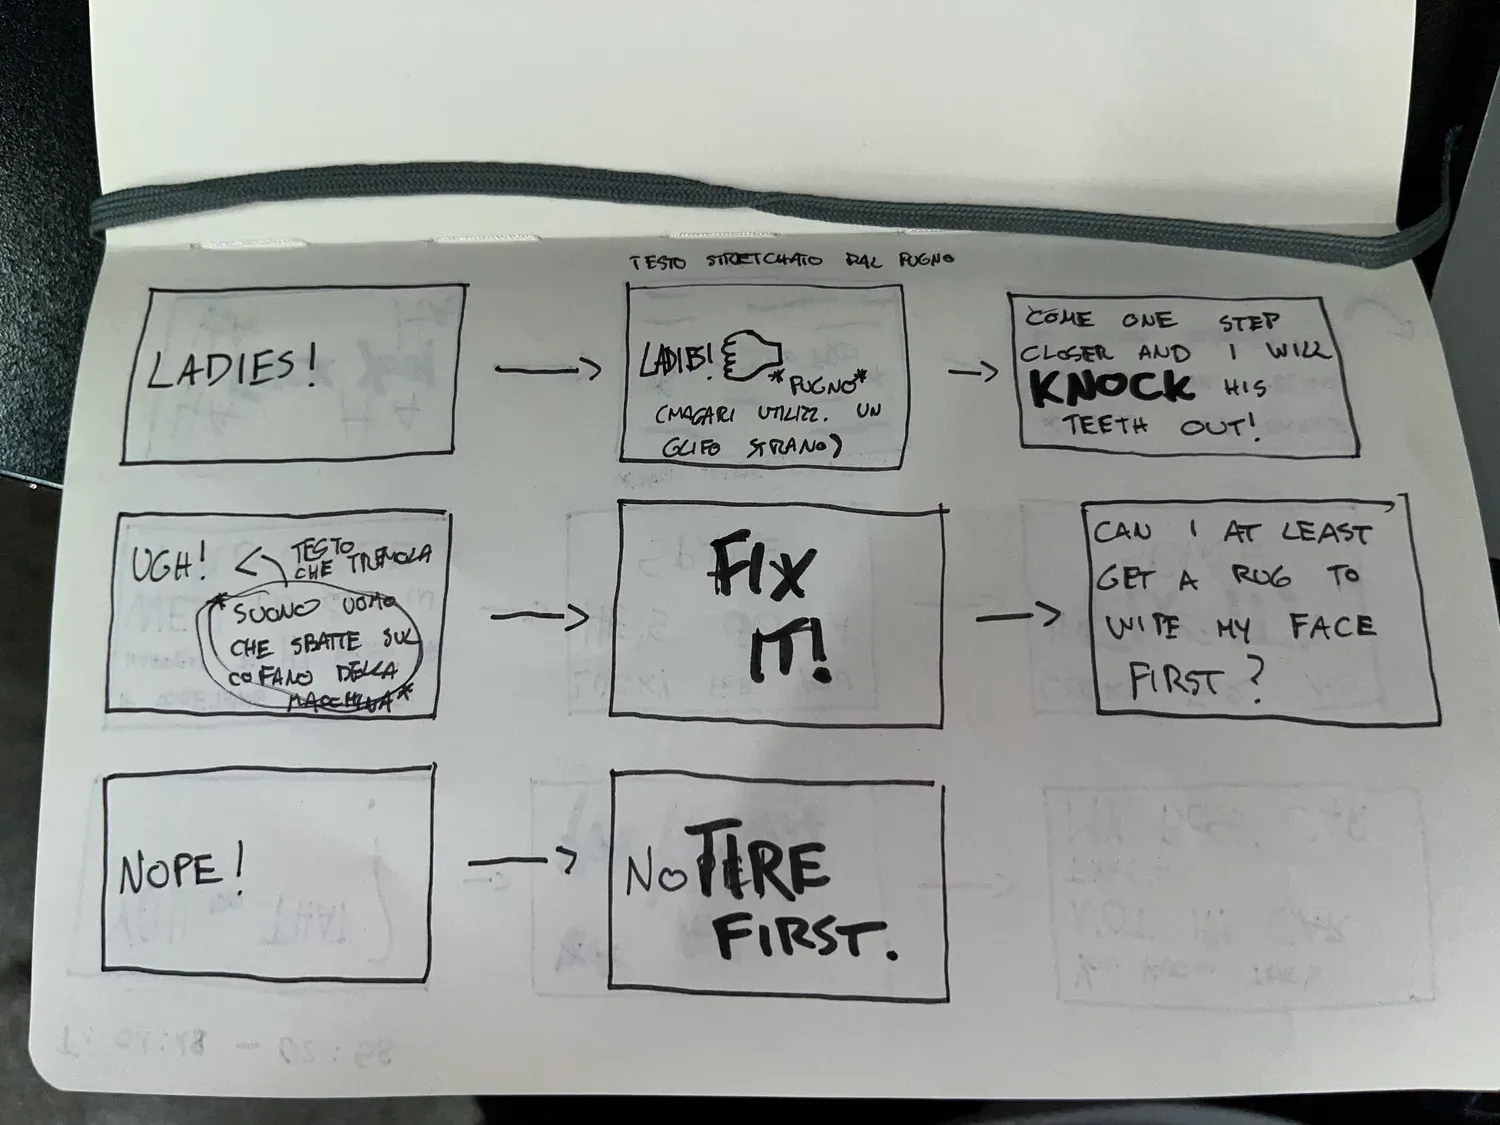 TESTO STRETCHATO DAL PUGNO
LADIES!
LADIES!
*PUGNO*
(MAGARI UTILIZZ. UN
GLIFO STRANO)
COME ONE STEP
CLOSER AND I WILL
KNOCK HIS
TEETH OUT!
UGH!
TESTO
CHE TREMOLA
*SUONO UOMO
CHE SBATTE SUL
COFANO DELLA
MACCHINA*
FIX
IT!
CAN I AT LEAST
GET A RUG TO
WIPE MY FACE
FIRST?
NOPE!
NO TIRE
FIRST.